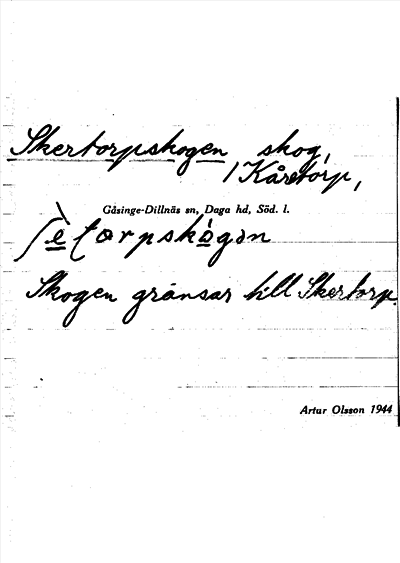 Skertorpskogen skog,
/ Kåretorp,
Gåsinge-Dillnäs sn, Daga hd, Söd. l.
Skogen gränsar till Skertorp.
Artur Olsson 1944